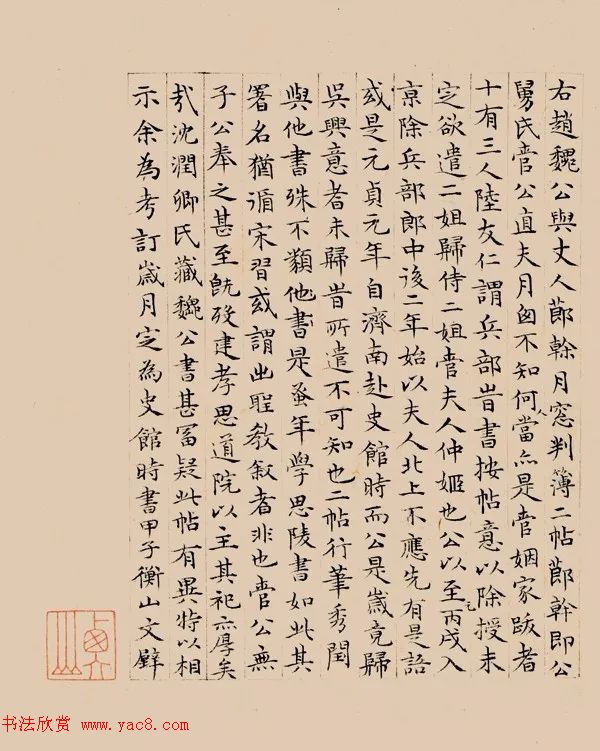 右趙魏公與丈人節幹月窓判簿二帖節幹即公
舅氏管公直夫月囱不知何人當亦是管姻家跋者
十有三人陸友仁謂兵部時書按帖意以除授未
定欲遣二姐歸侍二姐管夫人仲姬也公以至元丙戌入
京除兵部郎中後二年始以夫人北上不應先有是語
或是元貞元年自濟南赴史館時而公是歲竟歸
吳興意者未歸時所遣不可知也二帖行筆秀閏
與他書殊不類他書是蚤年學思陵書如此其
署名猶循宋習或謂出聖教敘者非也管公無
子公奉之甚至既歿建孝思道院以主其祀亦厚矣
㢤沈潤卿氏藏魏公書甚富疑此帖有異特以相
示余為考訂歲月定為史館時書甲子衡山文壁
书法欣赏 www.yac8.com